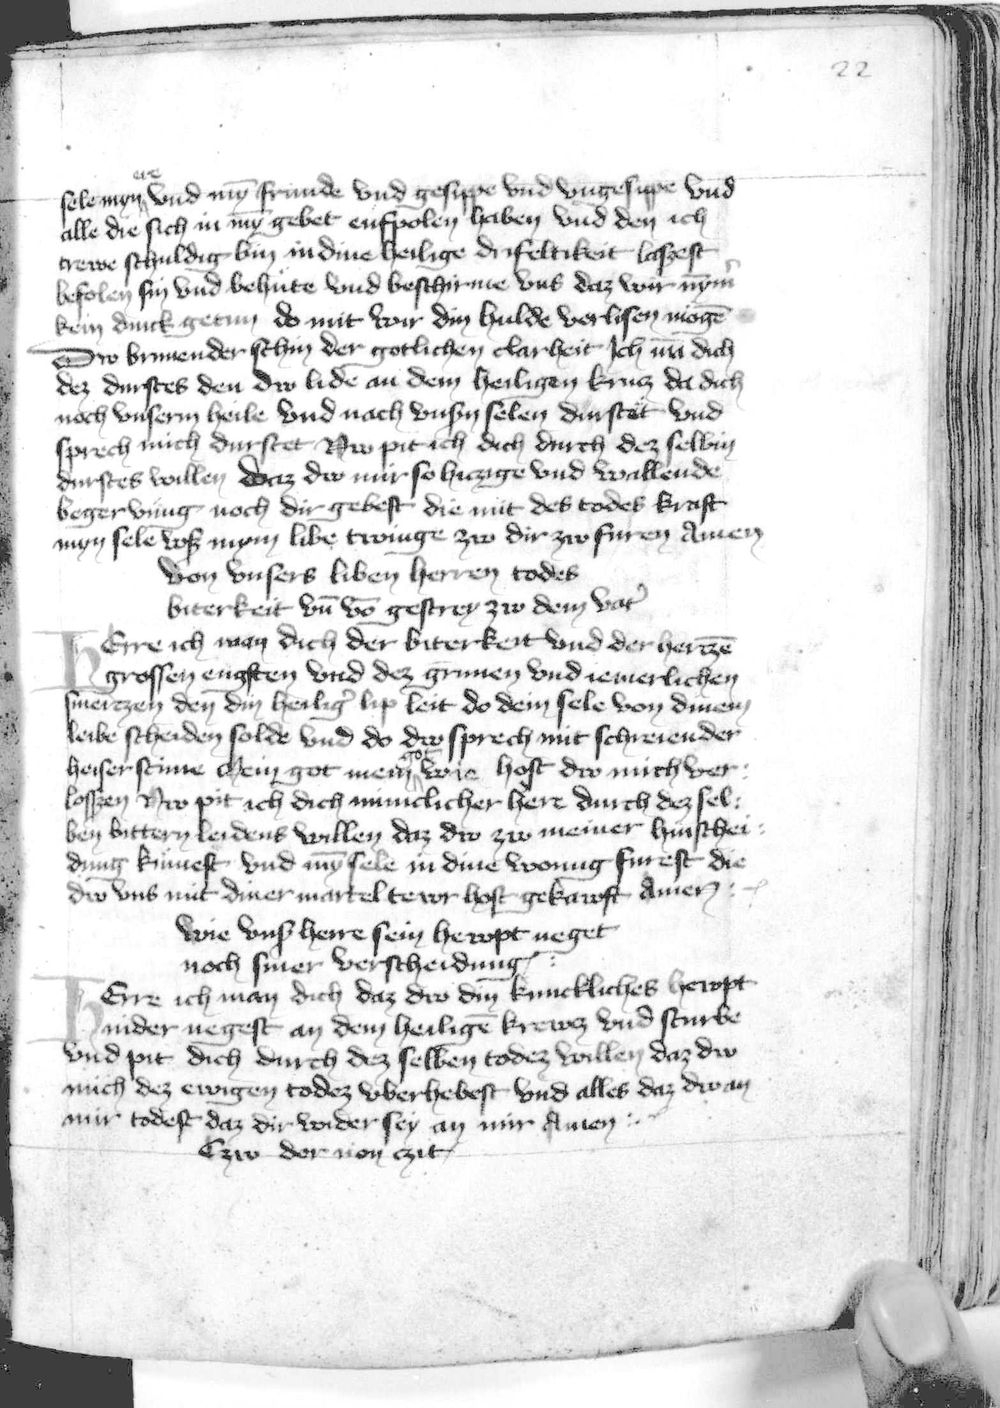 22
sele myn ere vnd mȳ frunde vnd gesippe vnd vngesippe vnd
alle die sich in mȳ gebet enfpolen haben vnd den ich
trewe schuldig bin in dine heilige drifeltikeit laszest
befolen sin vnd behute vnd beschirme vns daz wir nȳm̄
kein dinck getun do mit wir din hulde verlisen mogē
Dw brinender schin der gotlichen clarheit Ich man dich
dez durstes den dw lidē an dem heiligen krucz da dich
noch vnserm heile vnd nach vnsyn selen durstet vnd
sprech mich durstet Nw pit ich dich durch dez selbin
durstes willen daz dw mir so hiczige vnd wallende
beger vung noch dir gebest die mit des todes kraft
myn sele vß mym libe twinge zw dir zw furen Amen
Von vnsers liben herren todes
biterkeit vn̄ vō gestrey zw dem vat̓
HErre ich man dich der biterkeit vnd der herczē
grossen engsten vnd dez grimen vnd iemerlichen
smerczen den din heilig̓ lip leit do dein sele von dinem
leibe scheiden solde vnd do dw sprech mit schreiender
heiser stime Mein got mein got wie host dw mich ver:
loszen Nw pit ich dich minniclicher here durch dez sel:
ben bittern leidens willen daz dw zw meiner hinschei:
dung kumest vnd mȳ sele in dine wonung furest die
dw vns mit diner martel tewr host gekawft Amen
Wie vns̓ herre sein hewpt neget
noch siner verscheidung:
HErre ich man dich daz dw din kuncklichez hewpt
nider negest an dem heiligē krewcz vnd sturbe
vnd pit dich durch dez selben todez willen daz dw
mich dez ewigen todez vberhebest vnd alles daz dw an
mir todest daz dir wider sey an mir Amen:
Czw der non czit